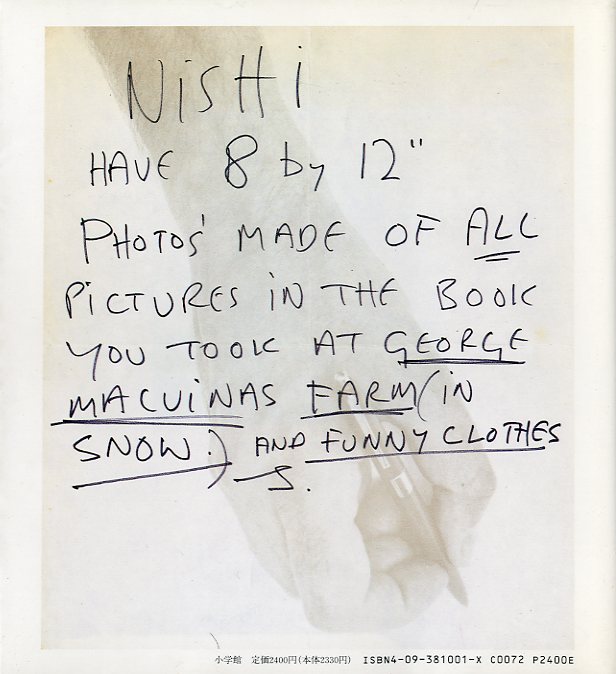 NiSHi
HAVE 8 by 12"
PHOTOS' MADE OF ALL
PiCTURES iN THE BOOK
YOU TOOK AT GEORGE
MACUiNAS FARM (iN
SNOW.) AND FUNNY CLOTHES
S.
小学館 定価2400円(本体2330円) ISBN4-09-381001-X C0072 P2400E